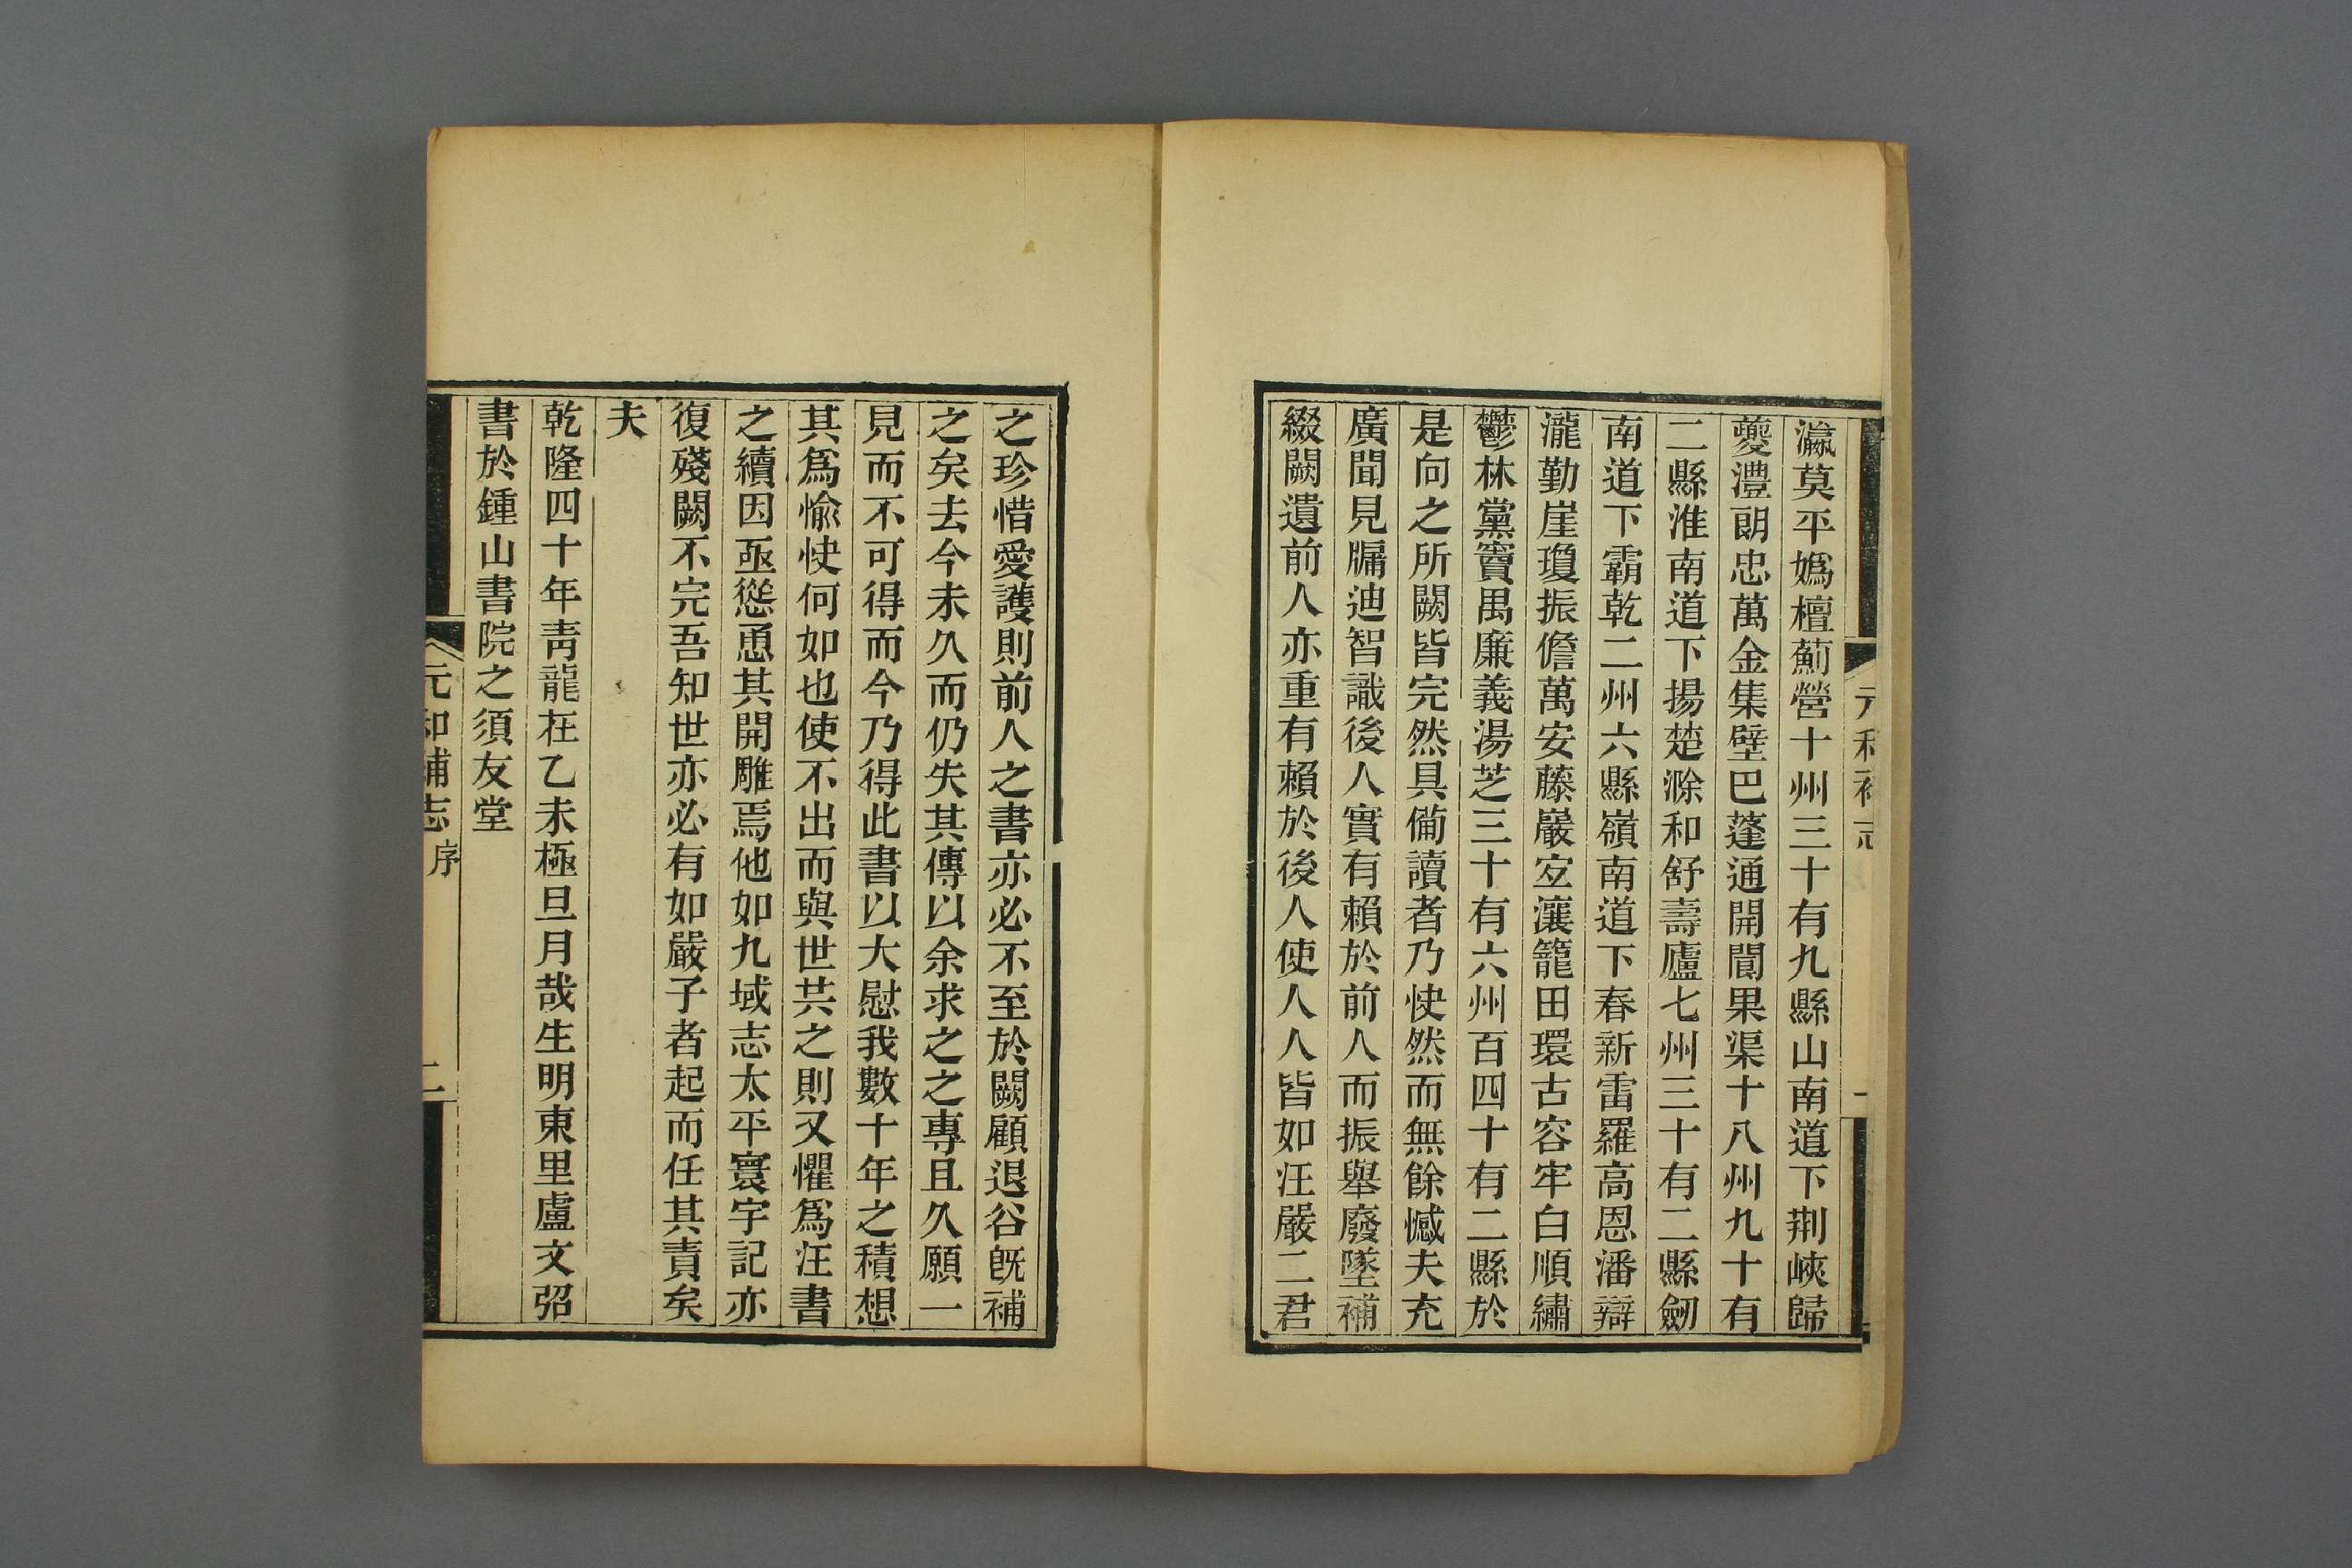 元和補志
一
瀛莫平媯檀薊營十州三十有九縣山南道下荆峽歸
夔澧朗忠萬金集壁巴蓬通開閬果渠十八州九十有
二縣淮南道下揚楚滁和舒壽廬七州三十有二縣劒
南道下霸乾二州六縣嶺南道下春新雷羅高恩潘辯
瀧勤崖瓊振儋萬安藤巖宐瀼籠田環古容牢白順繡
鬱林黨竇禺廉義湯芝三十有六州百四十有二縣於
是向之所闕皆完然具備讀者乃快然而無餘憾夫充
廣聞見牖迪智識後人實有賴於前人而振舉廢墜補
綴闕遺前人亦重有賴於後人使人人皆如汪嚴二君
之珍惜愛護則前人之書亦必不至於闕顧退谷旣補
之矣去今未久而仍失其傳以余求之之專且久願一
見而不可得而今乃得此書以大慰我數十年之積想
其爲愉快何如也使不出而與世共之則又懼爲汪書
之續因亟慫恿其開雕焉他如九域志太平寰宇記亦
復殘闕不完吾知世亦必有如嚴子者起而任其責矣
夫
乾隆四十年靑龍在乙未極旦月哉生明東里盧文弨
書於鍾山書院之須友堂
元和補志序
二